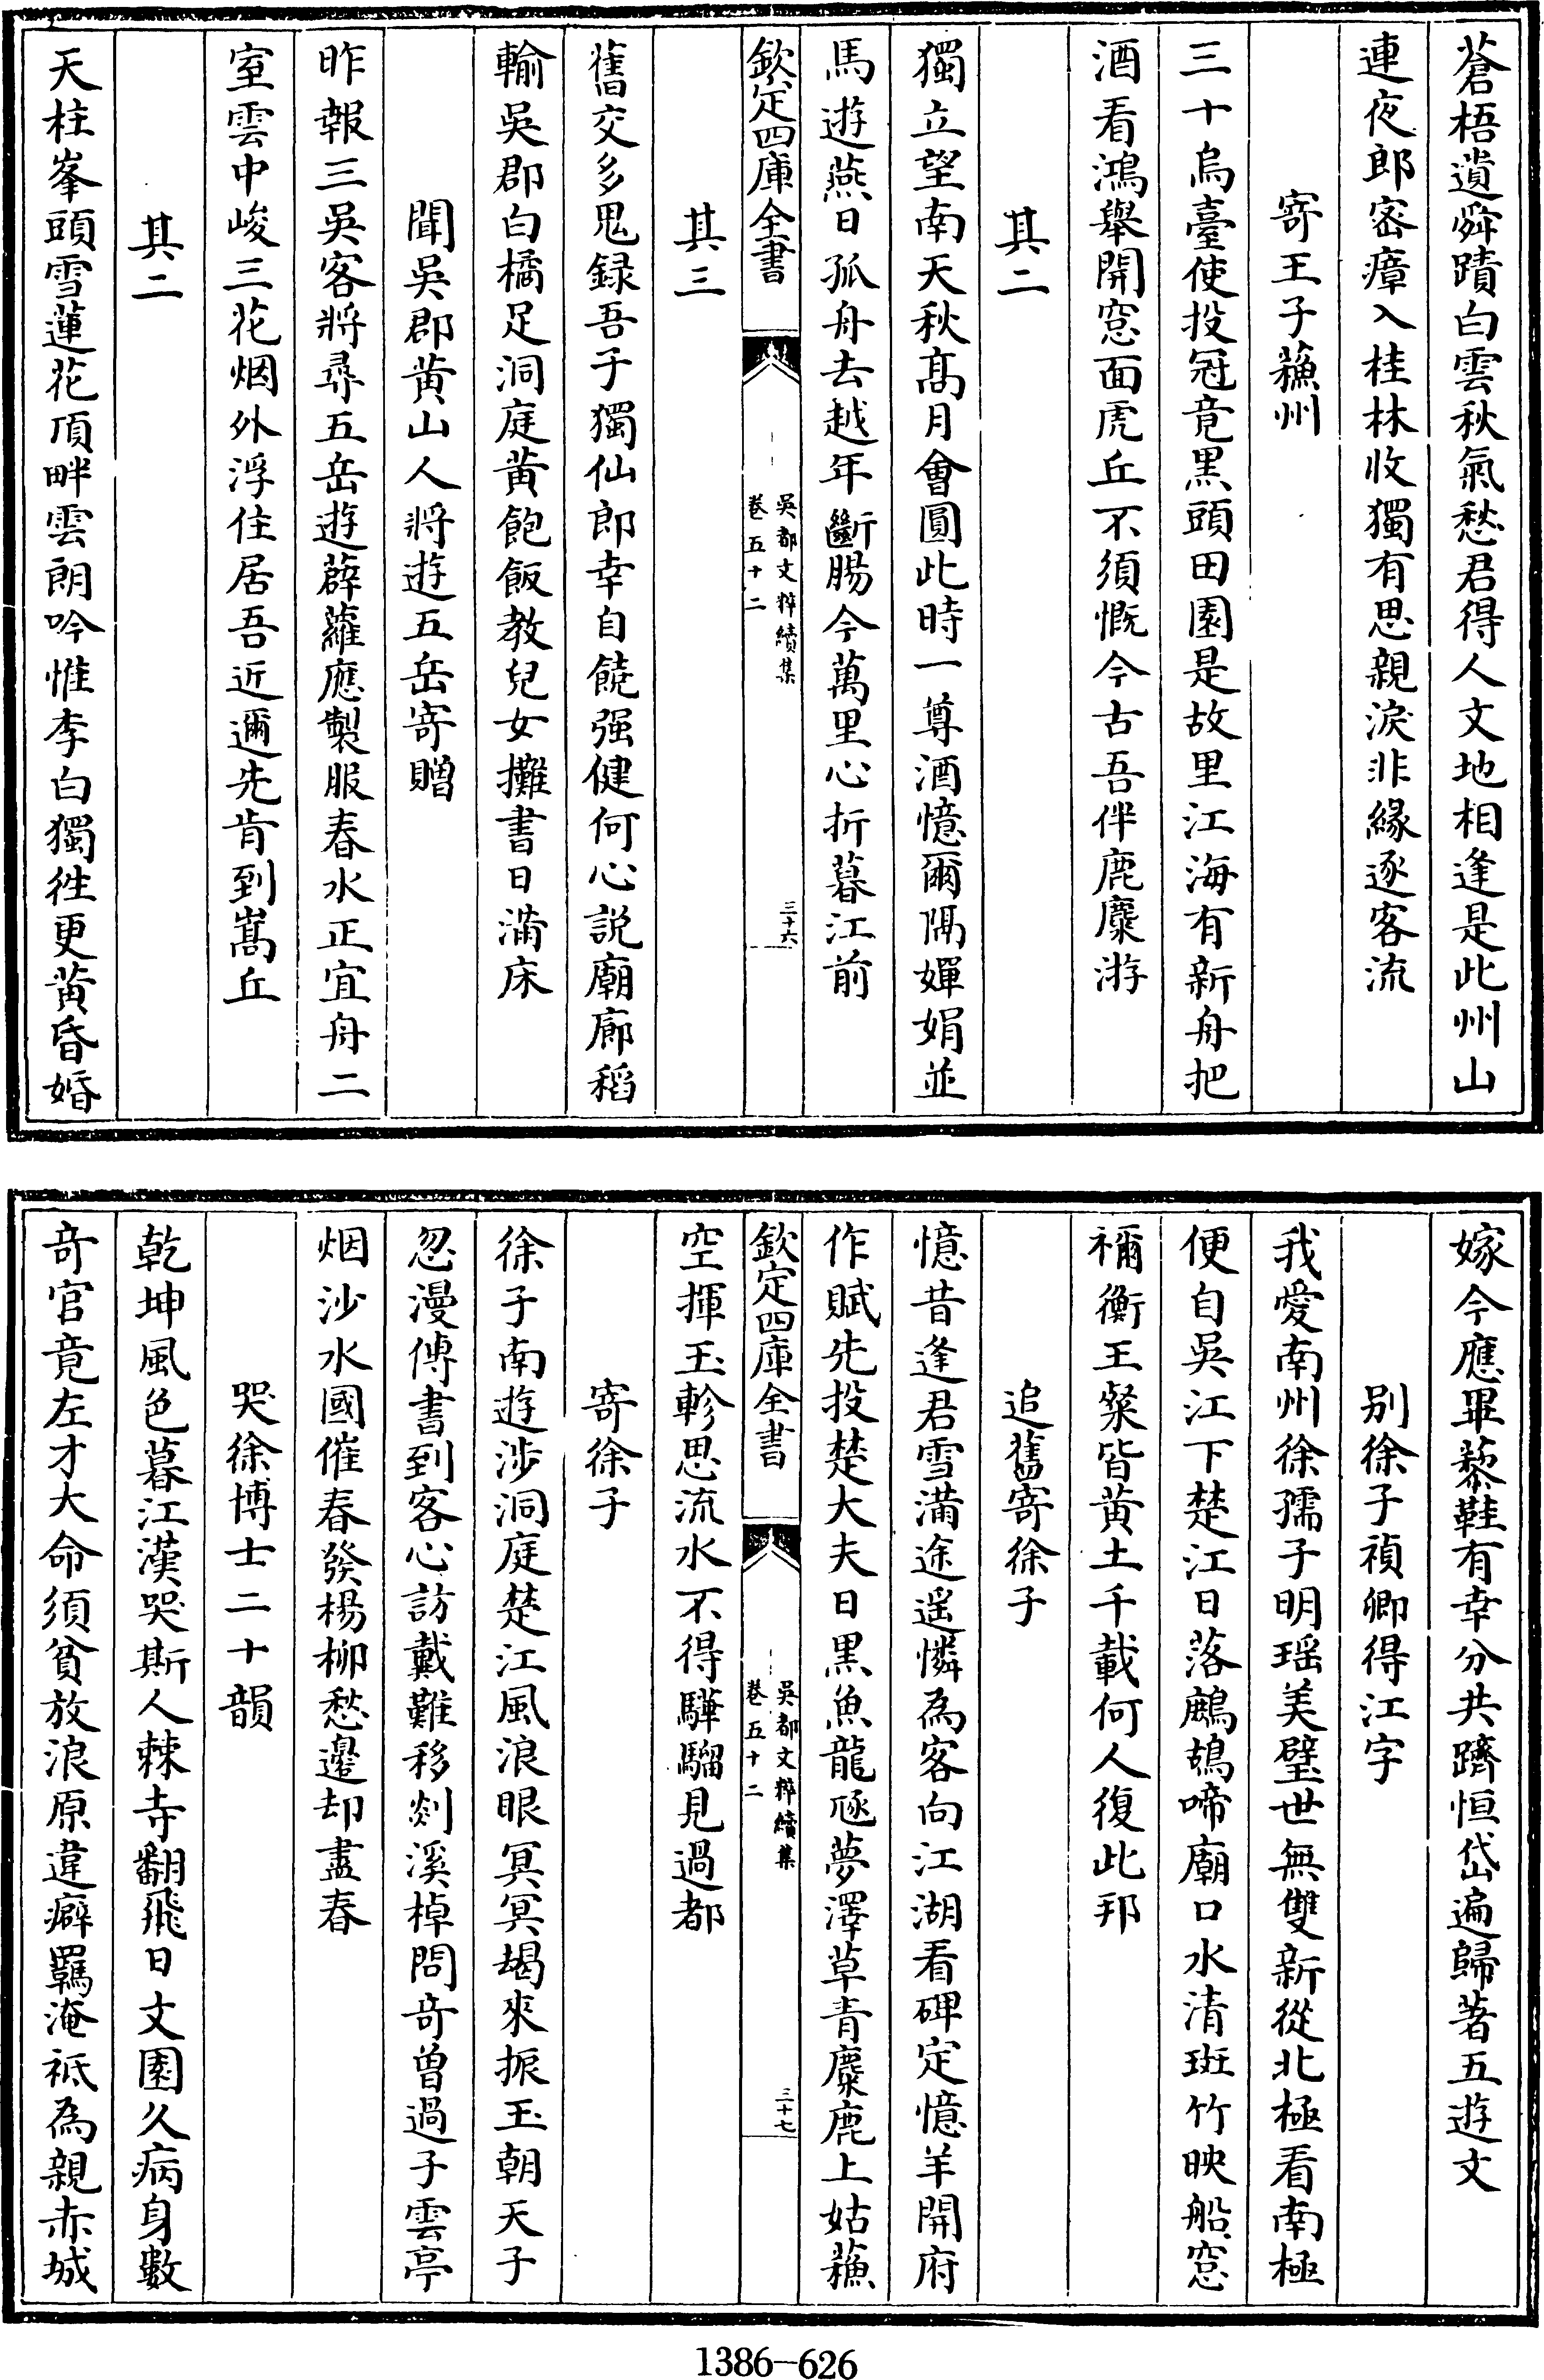 蒼梧遺舜蹟白雲秋氣愁君得人文地相逢是此州山
連夜郎密瘴入桂林收獨有思親淚非緣逐客流
寄王子蘓州
三十烏臺使投冠竟黒頭田園是故里江海有新舟把
酒看鴻舉開窓面虎丘不須慨今古吾伴鹿麋游
其二
獨立望南天秋髙月會圓此時一尊酒憶爾隅嬋娟並
馬遊燕日孤舟去越年斷腸今萬里心折暮江前
欽定四庫全書
吳都文粹續集
卷五十二
三十六
其三
舊交多鬼録吾子獨仙郎幸自饒强健何心説廟廊稻
輸吳郡白橘足洞庭黄飽飯教兒女攤書日滿床
聞吳郡黄山人將遊五岳寄贈
昨報三吳客將尋五岳遊薜蘿應製服春水正宜舟二
室雲中峻三花烟外浮住居吾近邇先肯到嵩丘
其二
天柱峯頭雪蓮花頂畔雲朗吟惟李白獨徃更黄昏婚
嫁今應畢藜鞋有幸分共躋恒岱遍歸著五遊文
别徐子禎卿得江字
我愛南州徐孺子明瑶美璧世無雙新從北極看南極
便自吳江下楚江日落鷓鴣啼廟口水清斑竹映船窓
禰衡王粲皆黄土千載何人復此邦
追舊寄徐子
憶昔逢君雪滿途遥憐為客向江湖看碑定憶羊開府
作賦先投楚大夫日黒魚龍𠩄夢澤草青麋鹿上姑蘓
欽定四庫全書
吳都文粹續集
卷五十二
三十七
空揮玉軫思流水不得驊騮見過都
寄徐子
徐子南遊涉洞庭楚江風浪眼冥冥朅來振玉朝天子
忽漫傅書到客心訪戴難移剡溪棹問竒曾過子雲亭
烟沙水國催春發楊柳愁邊却盡春
哭徐博士二十韻
乾坤風色暮江漢哭斯人棘寺翻飛日文園久病身數
竒官竟左才大命須貧放浪原違癖羈淹祗為親赤城
1386-626